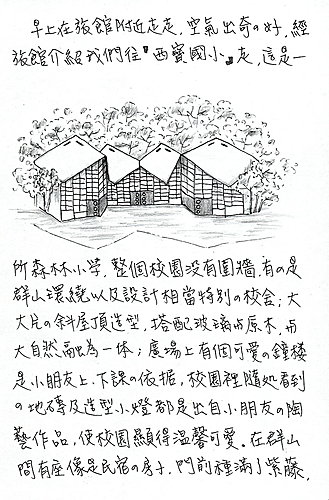 早上在旅館附近走走,空氣出奇の好,經
旅館介紹我們往『西寶國小』走,這是一
所森林小学,整個校園没有圍牆,有の是
群山環繞以及設計相當特別の校舍;大
大片の斜屋頂造型,搭配玻璃与原木,与
大自然融為一体;廣場上有個可愛の鐘樓
是小朋友上、下課の依据,校園裡隨処看到
の地磚及造型小燈都是出自小朋友の陶
藝作品,使校園顯得溫馨可愛。在群山
間有座像是民宿の房子,門前種滿了紫藤,